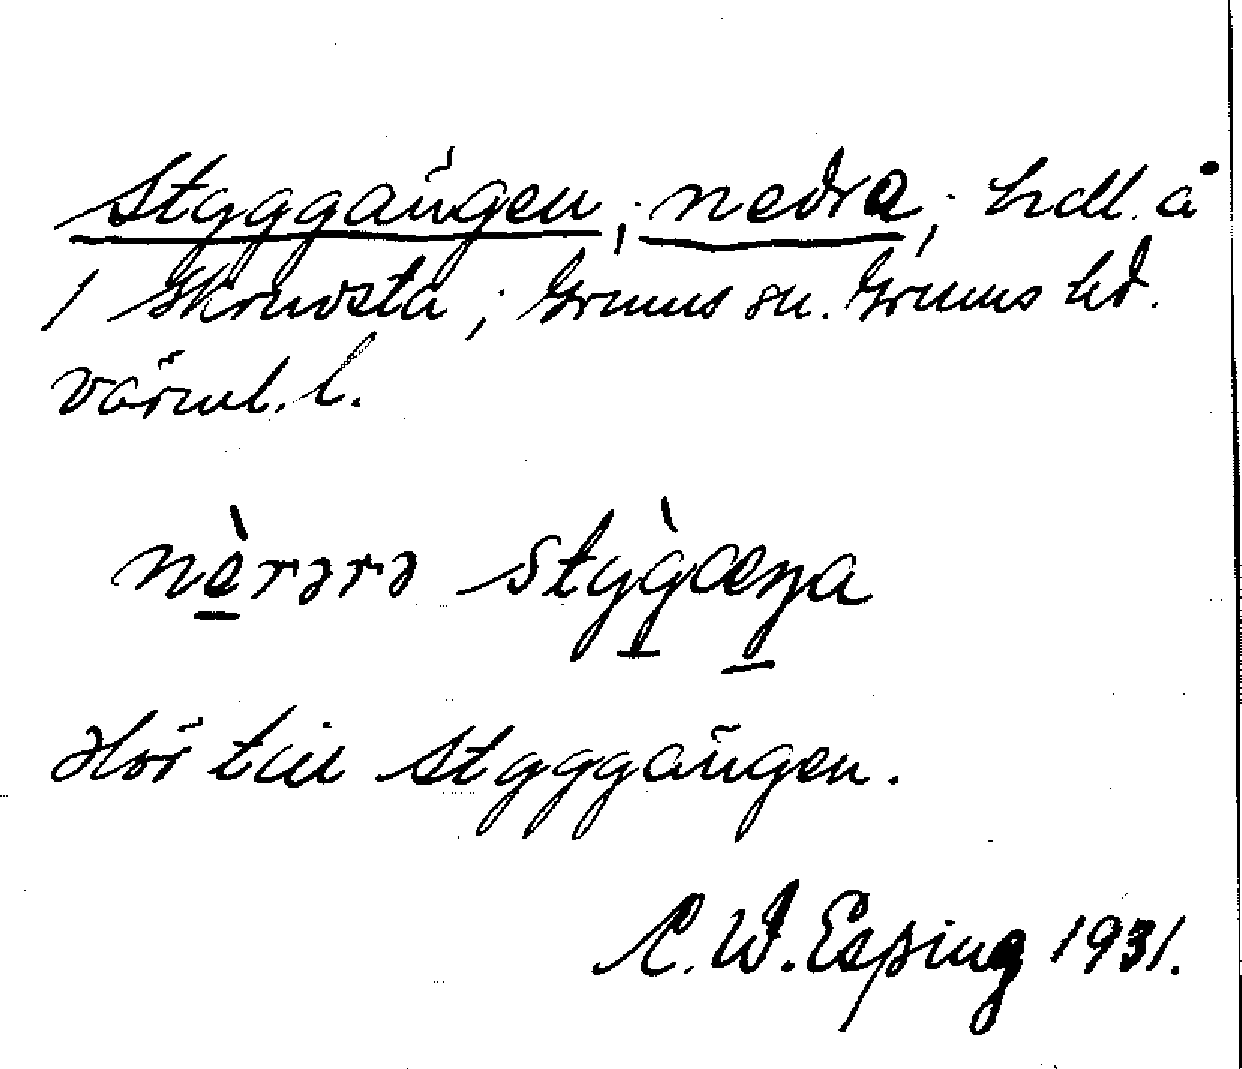 Styggängen, nedra, hdl. å
1 Skruvsta, Grums sn. Grums hd.
Värml. l.
nèrərə stygæŋa
Hör till Styggängen.
C. W. Esping 1931.